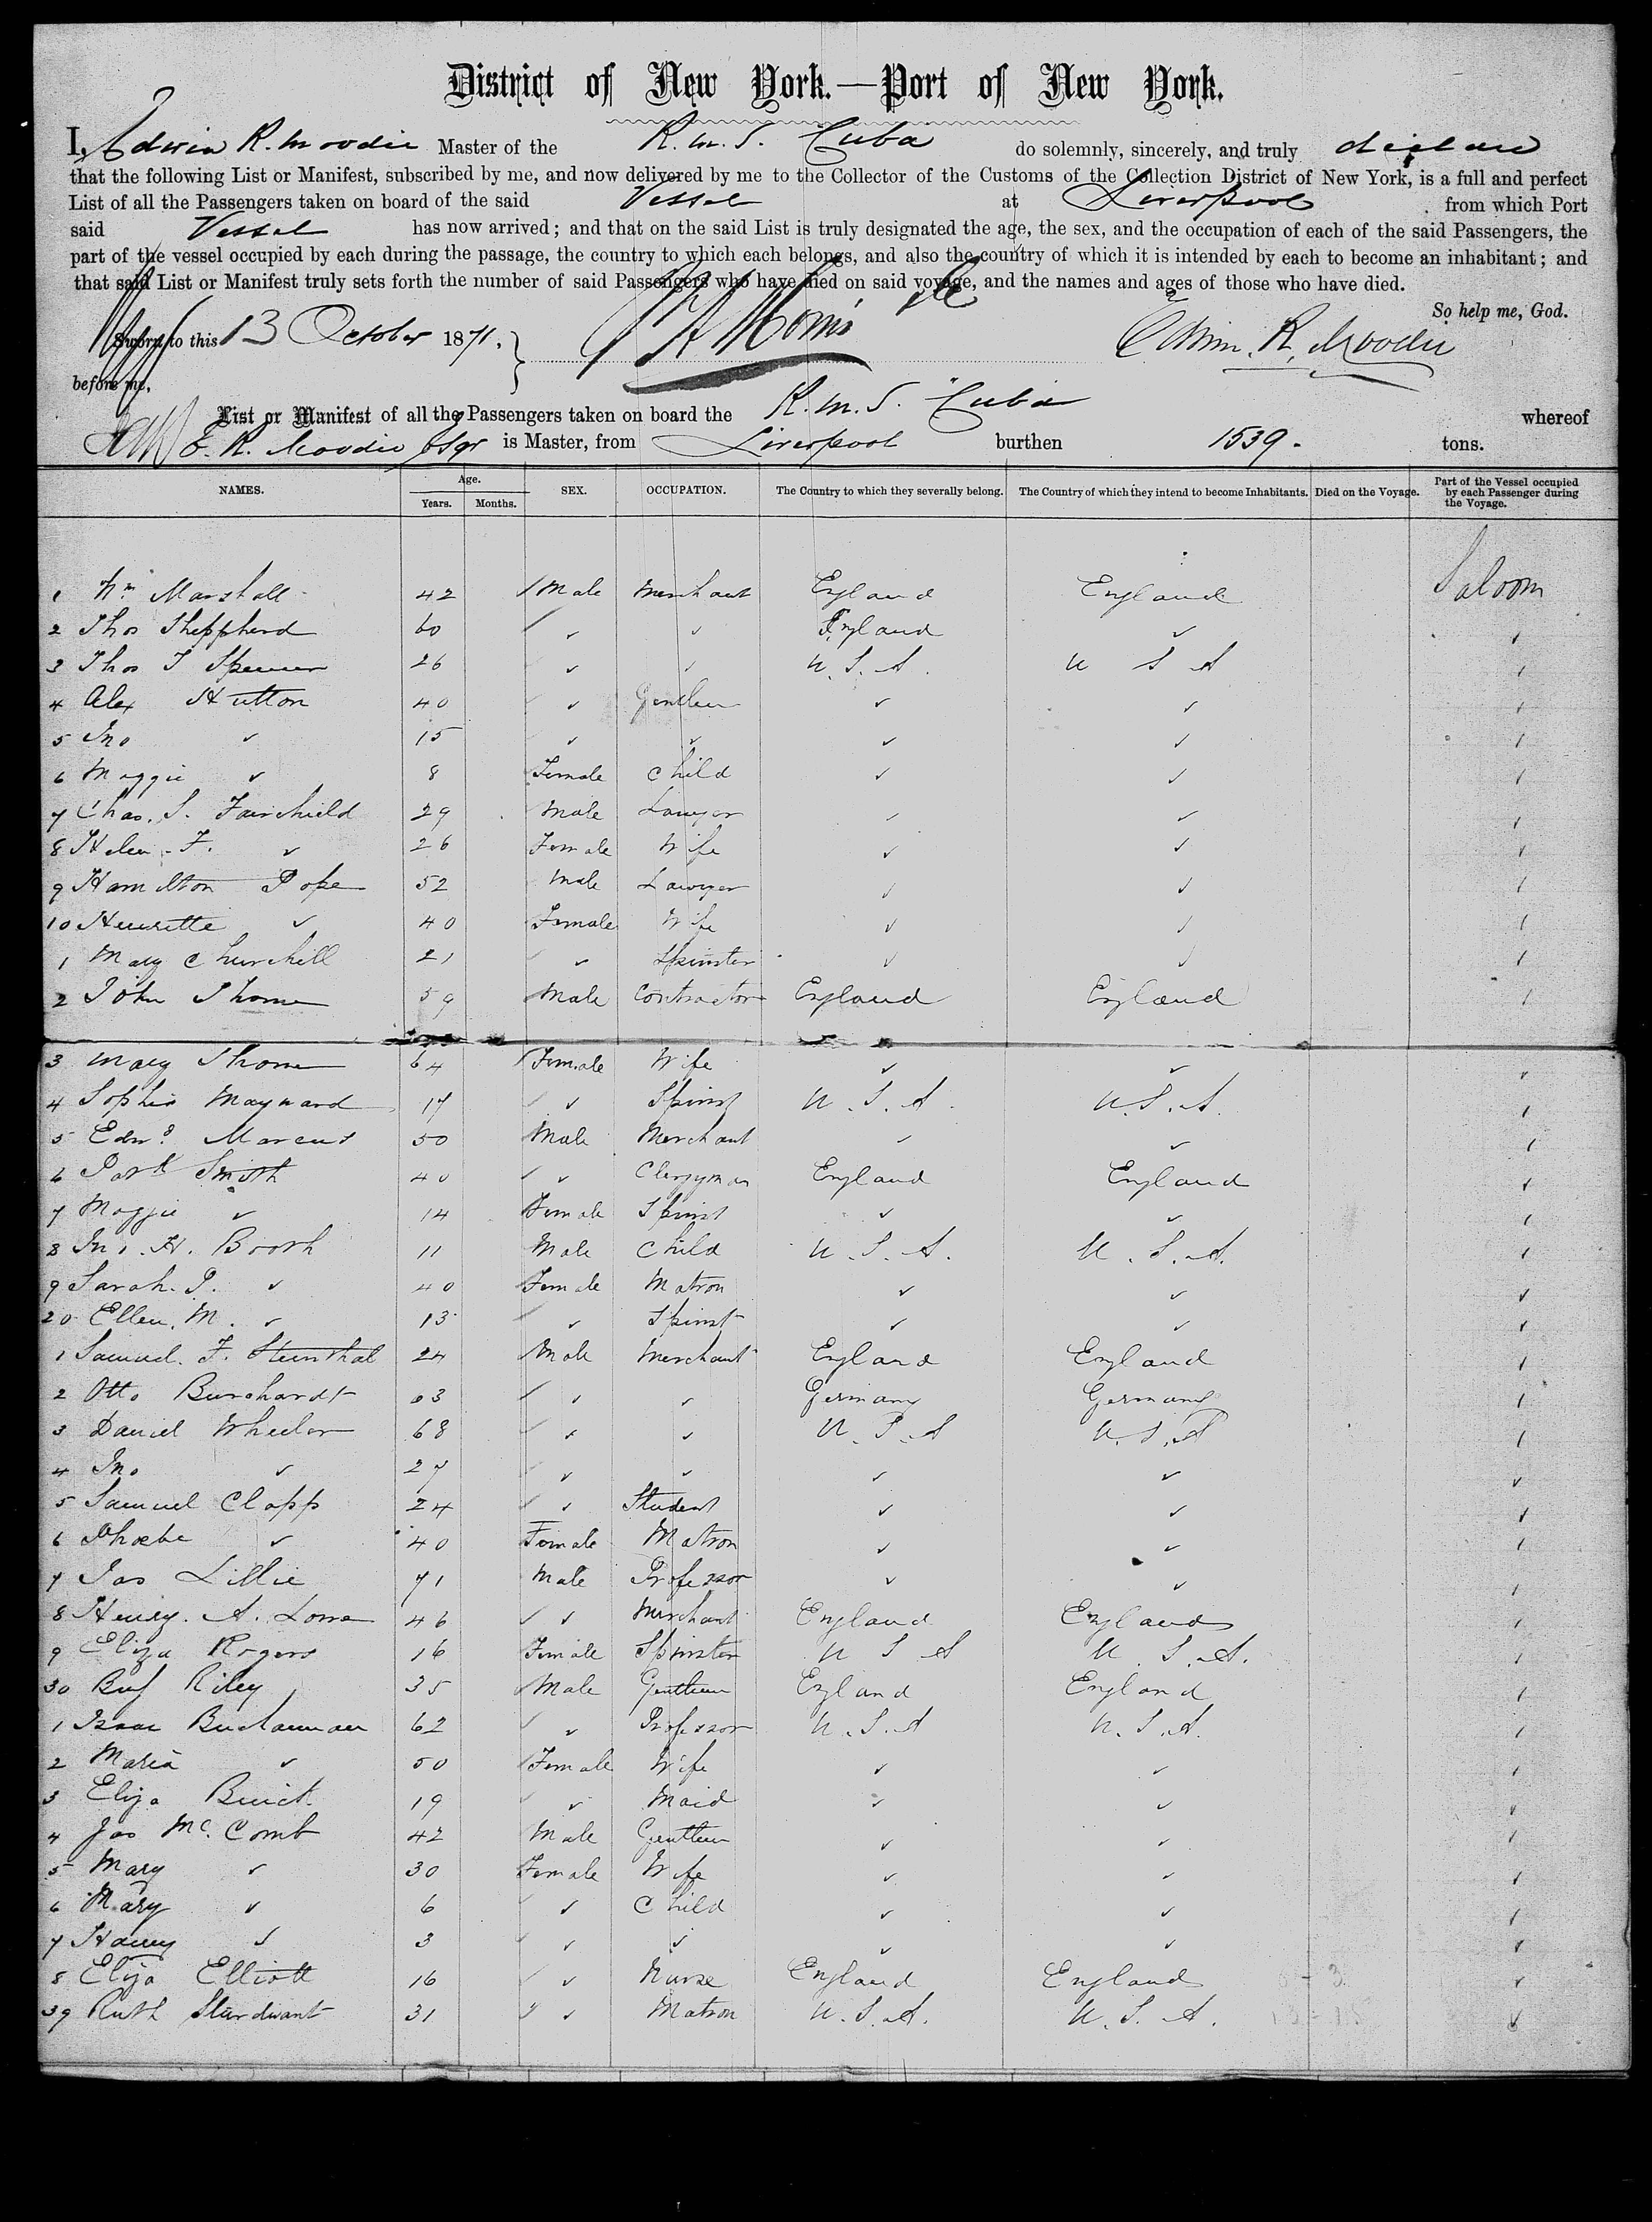 District of New York.—Port of New York.
I, Edwin R. Moodie Master of the R.M.S. Cuba do solemnly, sincerely, and truly declare
that the following List or Manifest, subscribed by me, and now delivered by me to the Collector of the Customs of the Collection District of New York, is a full and perfect
List of all the Passengers taken on board of the said Vessel at Liverpool from which Port
said Vessel has now arrived; and that on the said List is truly designated the age, the sex, and the occupation of each of the said Passengers, the
part of the vessel occupied by each during the passage, the country to which each belongs, and also the country of which it is intended by each to become an inhabitant; and
that said List or Manifest truly sets forth the number of said Passengers who have died on said voyage, and the names and ages of those who have died.
So help me, God.
Sworn to this 13 October 1871. Edwin. R. Moodie
before me,
List or Manifest of all the Passengers taken on board the R.M.S. "Cuba whereof
E. R. Moodie Esqr is Master, from Liverpool burthen 1539. tons.
NAMES. Age. Years. Months. SEX. OCCUPATION. The Country to which they severally belong. The Country of which they intend to become Inhabitants. Died on the Voyage. Part of the Vessel occupied by each Passenger during the Voyage.
1 Wm Marshall 42 Male Merchant England England Saloon
2 Thos Sheppherd 60 ✓ ✓ England ✓ ✓
3 Thos T Spencer 26 ✓ ✓ U.S.A. U S A ✓
4 Alex Hutton 40 ✓ Gentlem ✓ ✓ ✓
5 Jno ✓ 15 ✓ ✓ ✓ ✓ ✓
6 Maggie ✓ 8 Female Child ✓ ✓ ✓
7 Chas. S. Fairchield 29 Male Lawyer ✓ ✓ ✓
8 Helen. F. ✓ 26 Female Wife ✓ ✓ ✓
9 Hamilton Pope 52 Male Lawyer ✓ ✓ ✓
10 Henriette ✓ 40 Female Wife ✓ ✓ ✓
1 Mary Churchill 21 ✓ Spinster ✓ ✓ ✓
2 John Thorne 59 Male Contractor England England ✓
3 Mary Thorne 64 Female Wife ✓ ✓ ✓
4 Sophia Maynard 17 ✓ Spinst U.S.A. U.S.A. ✓
5 Edwd Marcus 50 Male Merchant ✓ ✓ ✓
6 Park Smith 40 ✓ Clergyman England England ✓
7 Maggie ✓ 14 Female Spinst ✓ ✓ ✓
8 Jno. H. Booth 11 Male Child U.S.A. U.S.A. ✓
9 Sarah. P. ✓ 40 Female Matron ✓ ✓ ✓
20 Ellen. M. ✓ 13 ✓ Spinst ✓ ✓ ✓
1 Samuel. F. Steinthal 24 Male Merchant England England ✓
2 Otto Burchardt 63 ✓ ✓ Germany Germany ✓
3 Daniel Wheeler 68 ✓ ✓ U.S.A U.S.A ✓
4 Jno ✓ 27 ✓ ✓ ✓ ✓ ✓
5 Samuel Clapp 24 ✓ Student ✓ ✓ ✓
6 Phoebe ✓ 40 Female Matron ✓ ✓ ✓
7 Jas Lillie 71 Male Professor ✓ ✓ ✓
8 Henry. A. Lowe 46 ✓ Merchant England England ✓
9 Eliza Rogers 16 Female Spinster U S A U.S.A. ✓
30 Benj Riley 35 Male Gentlem England England ✓
1 Isaac Buchannan 62 ✓ Professor U.S.A U.S.A. ✓
2 Maria ✓ 50 Female Wife ✓ ✓ ✓
3 Eliza Buick 19 ✓ Maid ✓ ✓ ✓
4 Jas Mc.Comb 42 Male Gentlem ✓ ✓ ✓
5 Mary ✓ 30 Female Wife ✓ ✓ ✓
6 Mary ✓ 6 ✓ Child ✓ ✓ ✓
7 Harry ✓ 3 ✓ ✓ ✓ ✓ ✓
8 Eliza Elliott 16 ✓ Nurse England England ✓
39 Ruth Sturdivant 31 ✓ Matron U.S.A. U.S.A. ✓